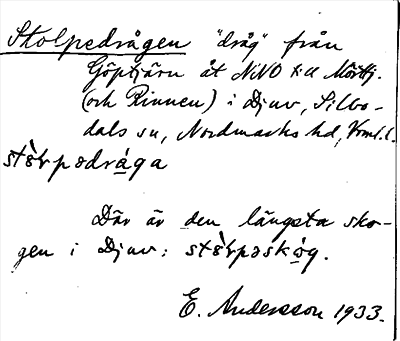 Stolpedrågen "dråg" från
Göptjärn åt NNO t.a Mörttj.
(och Rinnen) i Djuv, Silbo-
dals sn, Nordmarks hd, Vrml. l.
stɵ̀rpədråga
Där är den längsta sko-
gen i Djuv: stɵ̀rpəskóg.
E. Andersson 1933.